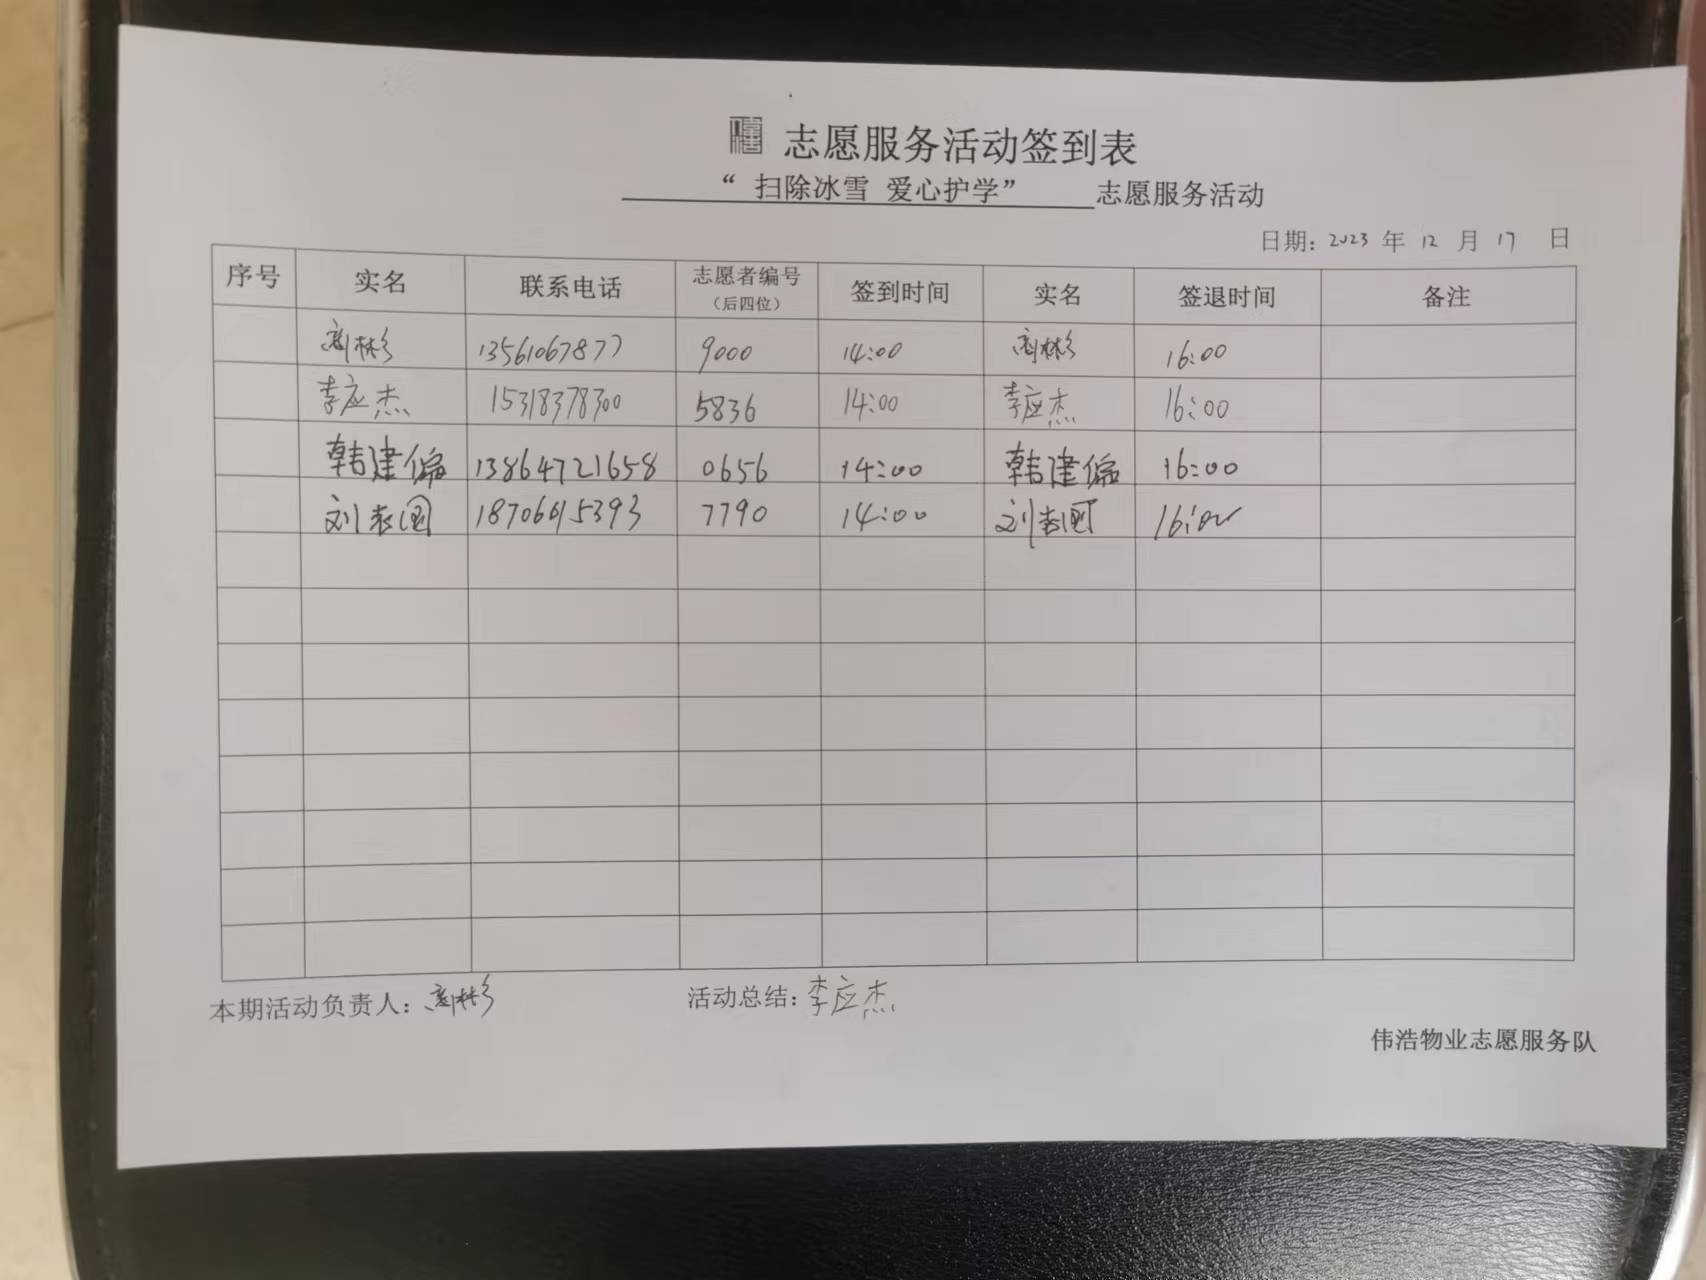 志愿服务活动签到表
“ 扫除冰雪 爱心护学” 志愿服务活动
日期: 2023 年 12 月 17 日
序号 实名 联系电话 志愿者编号(后四位) 签到时间 实名 签退时间 备注
13561067877 9000 14:00 16:00
李应杰 15318378300 5836 14:00 李应杰 16:00
韩建偏 13864721658 0656 14:00 韩建偏 16:00
刘国 18706615393 7790 14:00 刘国 16:00
本期活动负责人: 活动总结: 李应杰
伟浩物业志愿服务队